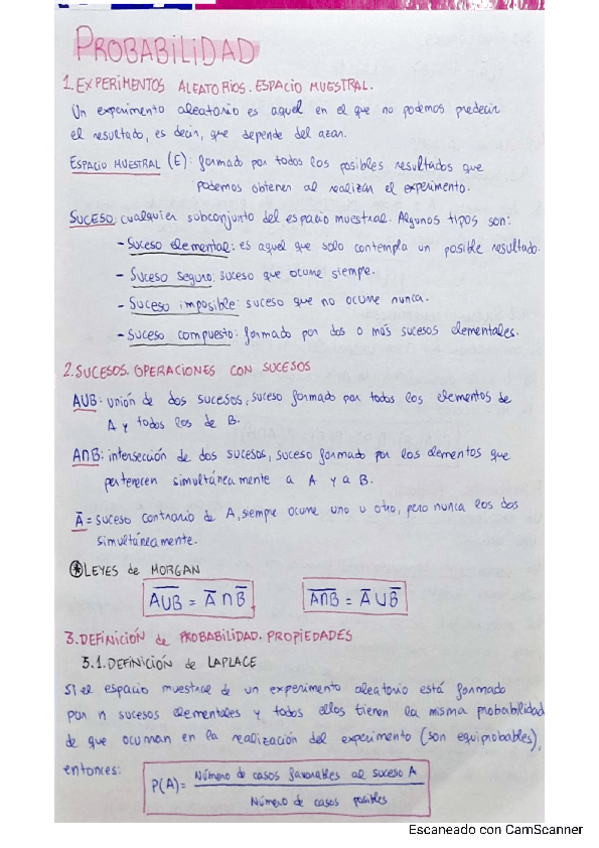 PROBABILIDAD
1. EXPERIMENTOS ALEATORIOS. ESPACIO MUESTRAL.
Un experimento aleatorio es aquel en el que no podemos predecir
el resultado, es decir, que depende del azar.
ESPACIO MUESTRAL (E): formado por todos los posibles resultados que
podemos obtener al realizar el experimento.
SUCESO: cualquier subconjunto del espacio muestral. Algunos tipos son:
- Suceso elemental: es aquel que solo contempla un posible resultado.
- Suceso seguro: suceso que ocurre siempre.
- Suceso imposible: suceso que no ocurre nunca.
- Suceso compuesto: formado por dos o más sucesos elementales.
2. SUCESOS. OPERACIONES CON SUCESOS
A∪B: unión de dos sucesos, suceso formado por todos los elementos de
A y todos los de B.
A∩B: intersección de dos sucesos, suceso formado por los elementos que
pertenecen simultáneamente a A y a B.
A̅ = suceso contrario de A, siempre ocurre uno u otro, pero nunca los dos
simultáneamente.
* LEYES de MORGAN
A̅∪̅B̅ = A̅ ∩ B̅ A̅∩̅B̅ = A̅ ∪ B̅
3. DEFINICIÓN de PROBABILIDAD. PROPIEDADES
3.1. DEFINICIÓN de LAPLACE
Si el espacio muestral de un experimento aleatorio está formado
por n sucesos elementales y todos ellos tienen la misma probabilidad
de que ocurran en la realización del experimento (son equiprobables),
entonces:
P(A) = Número de casos favorables al suceso A
Número de casos posibles
Escaneado con CamScanner